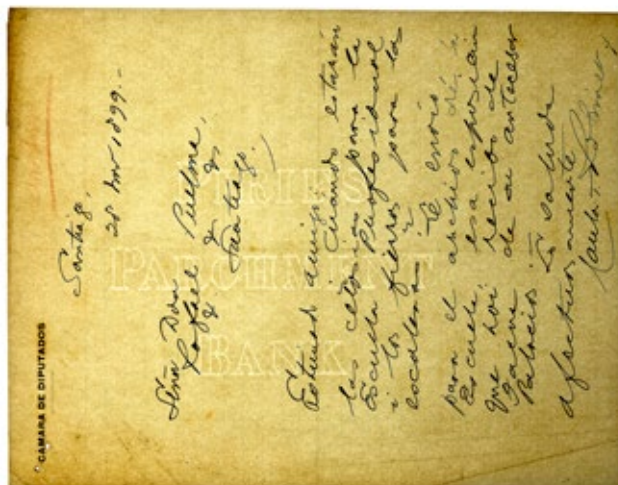 CAMARA DE DIPUTADOS
Santiago,
28 Nov 1899.-
Señor Don
Rafael Puelma,
&  &  &
Santiago.
Estimado amigo:
Cuando estarán
las para la
Escuela Profesional
i los fierros para la
escalera?
Le envío
para el archivo de la
Escuela esa
que hoi recibo de
de su antecesor
Palacios.
Lo saluda
afectuosamente
PERIES
PARCHMENT
BANK